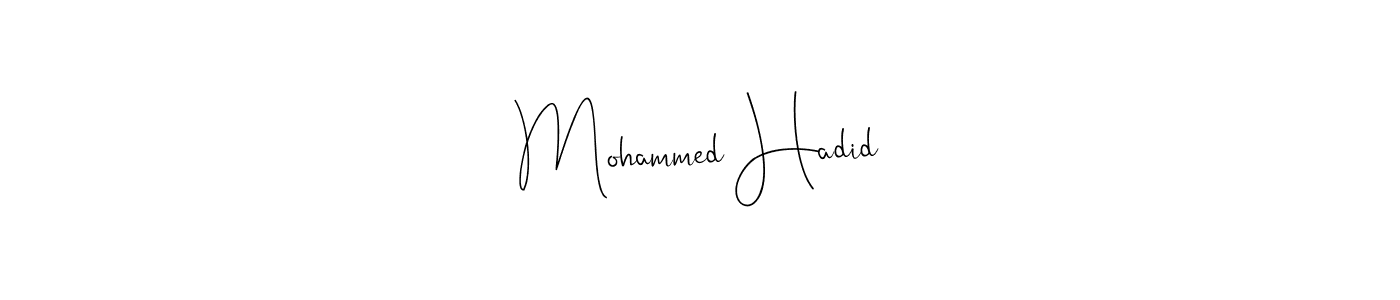 Mohammed Hadid